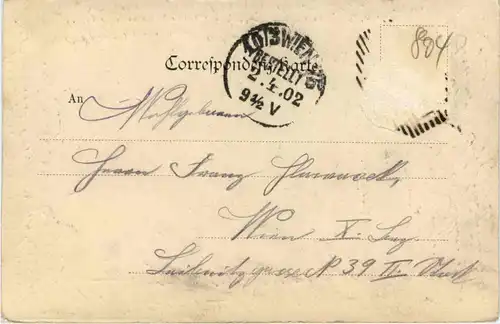 804
10/3 WIEN
BESTELLT
2.4.02
9½ V
Correspondenz-Karte
An
Wohlgeboren
Herrn Franz
Wien X. Bez
Leibnitzgasse N 39 II